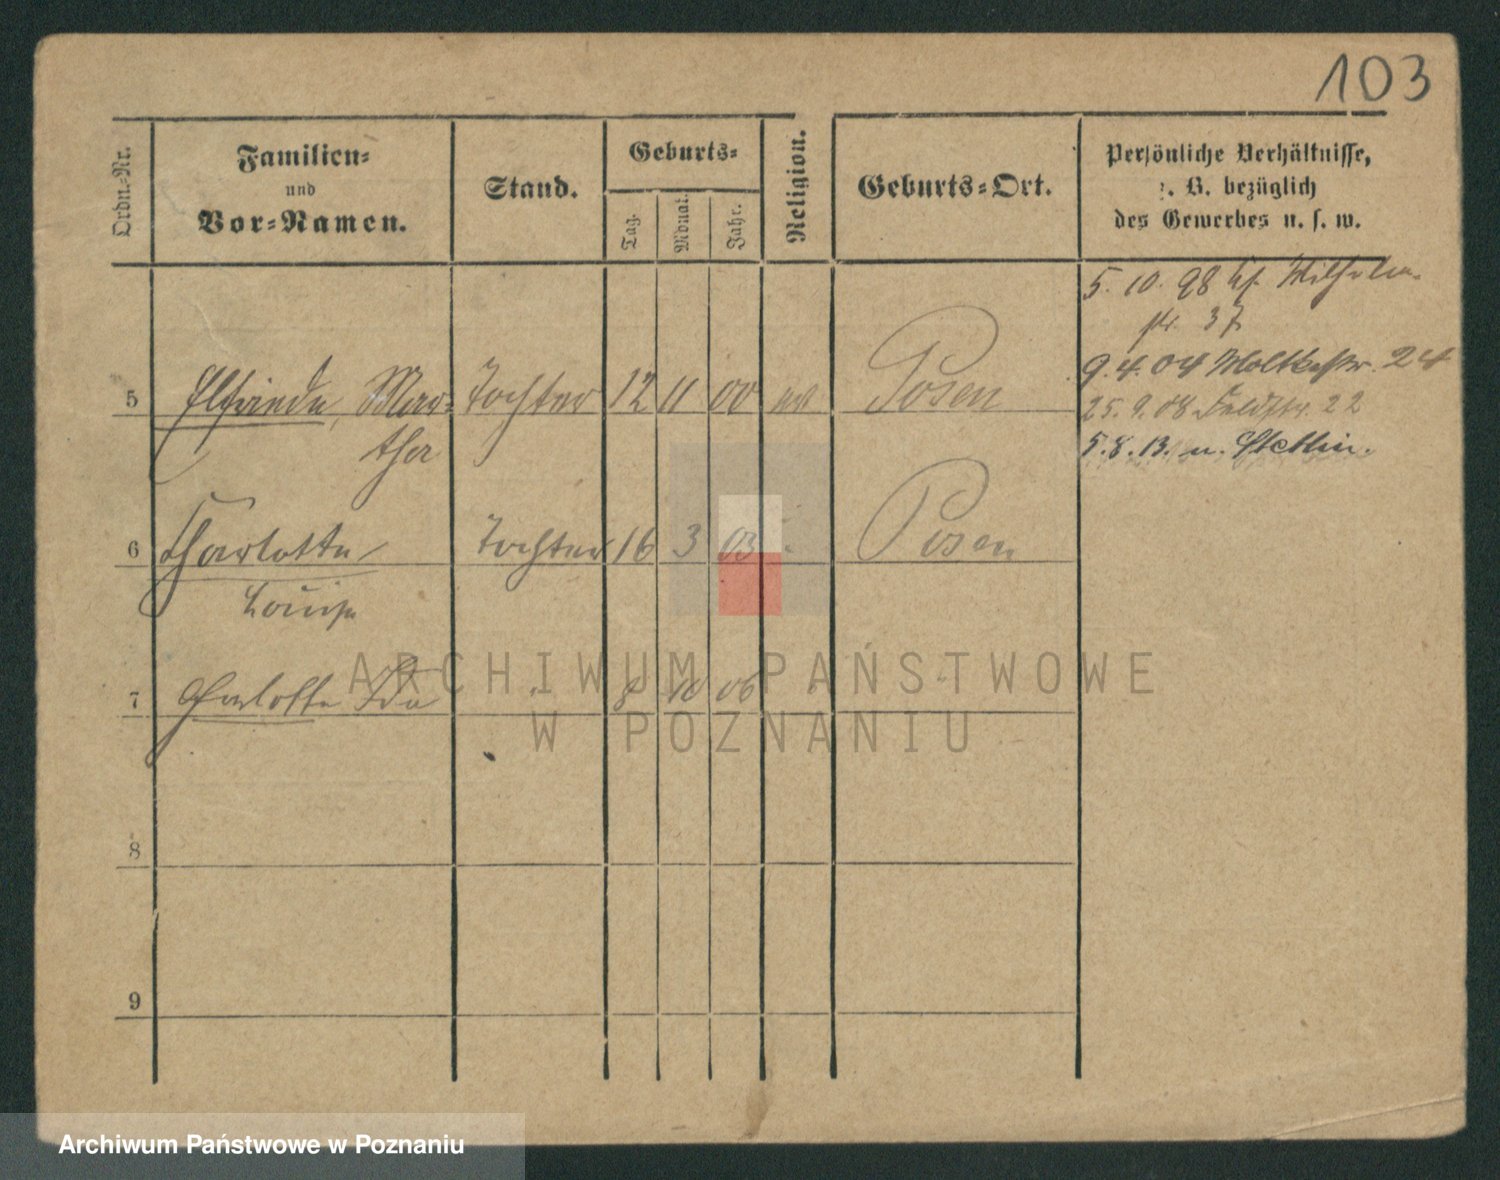 103
Ordn.-Nr.
Familien-
und
Vor-Namen.
Stand.
Geburts-
Tag.
Monat.
Jahr.
Religion.
Geburts-Ort.
Persönliche Verhältnisse,
z. B. bezüglich
des Gewerbes u. s. w.
5. 10. 98 Wilhelm-
str. 37
9. 4. 04 Moltkestr. 24
25. 9. 08 Feldstr. 22
5. 8. 13. n. Stettin.
5 Elfriede, Mar- Tochter 12 11 00 ev Posen
tha
6 Charlotte Tochter 16 3 03 Posen
Louise
7 Charlotte Ida 8 10 06
8
9
ARCHIWUM PAŃSTWOWE
W POZNANIU
Archiwum Państwowe w Poznaniu